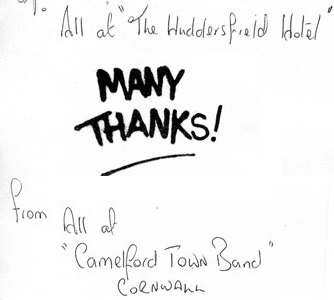 To All at "The Huddersfield Hotel"
MANY
THANKS!
from All at
"Camelford Town Band"
CORNWALL